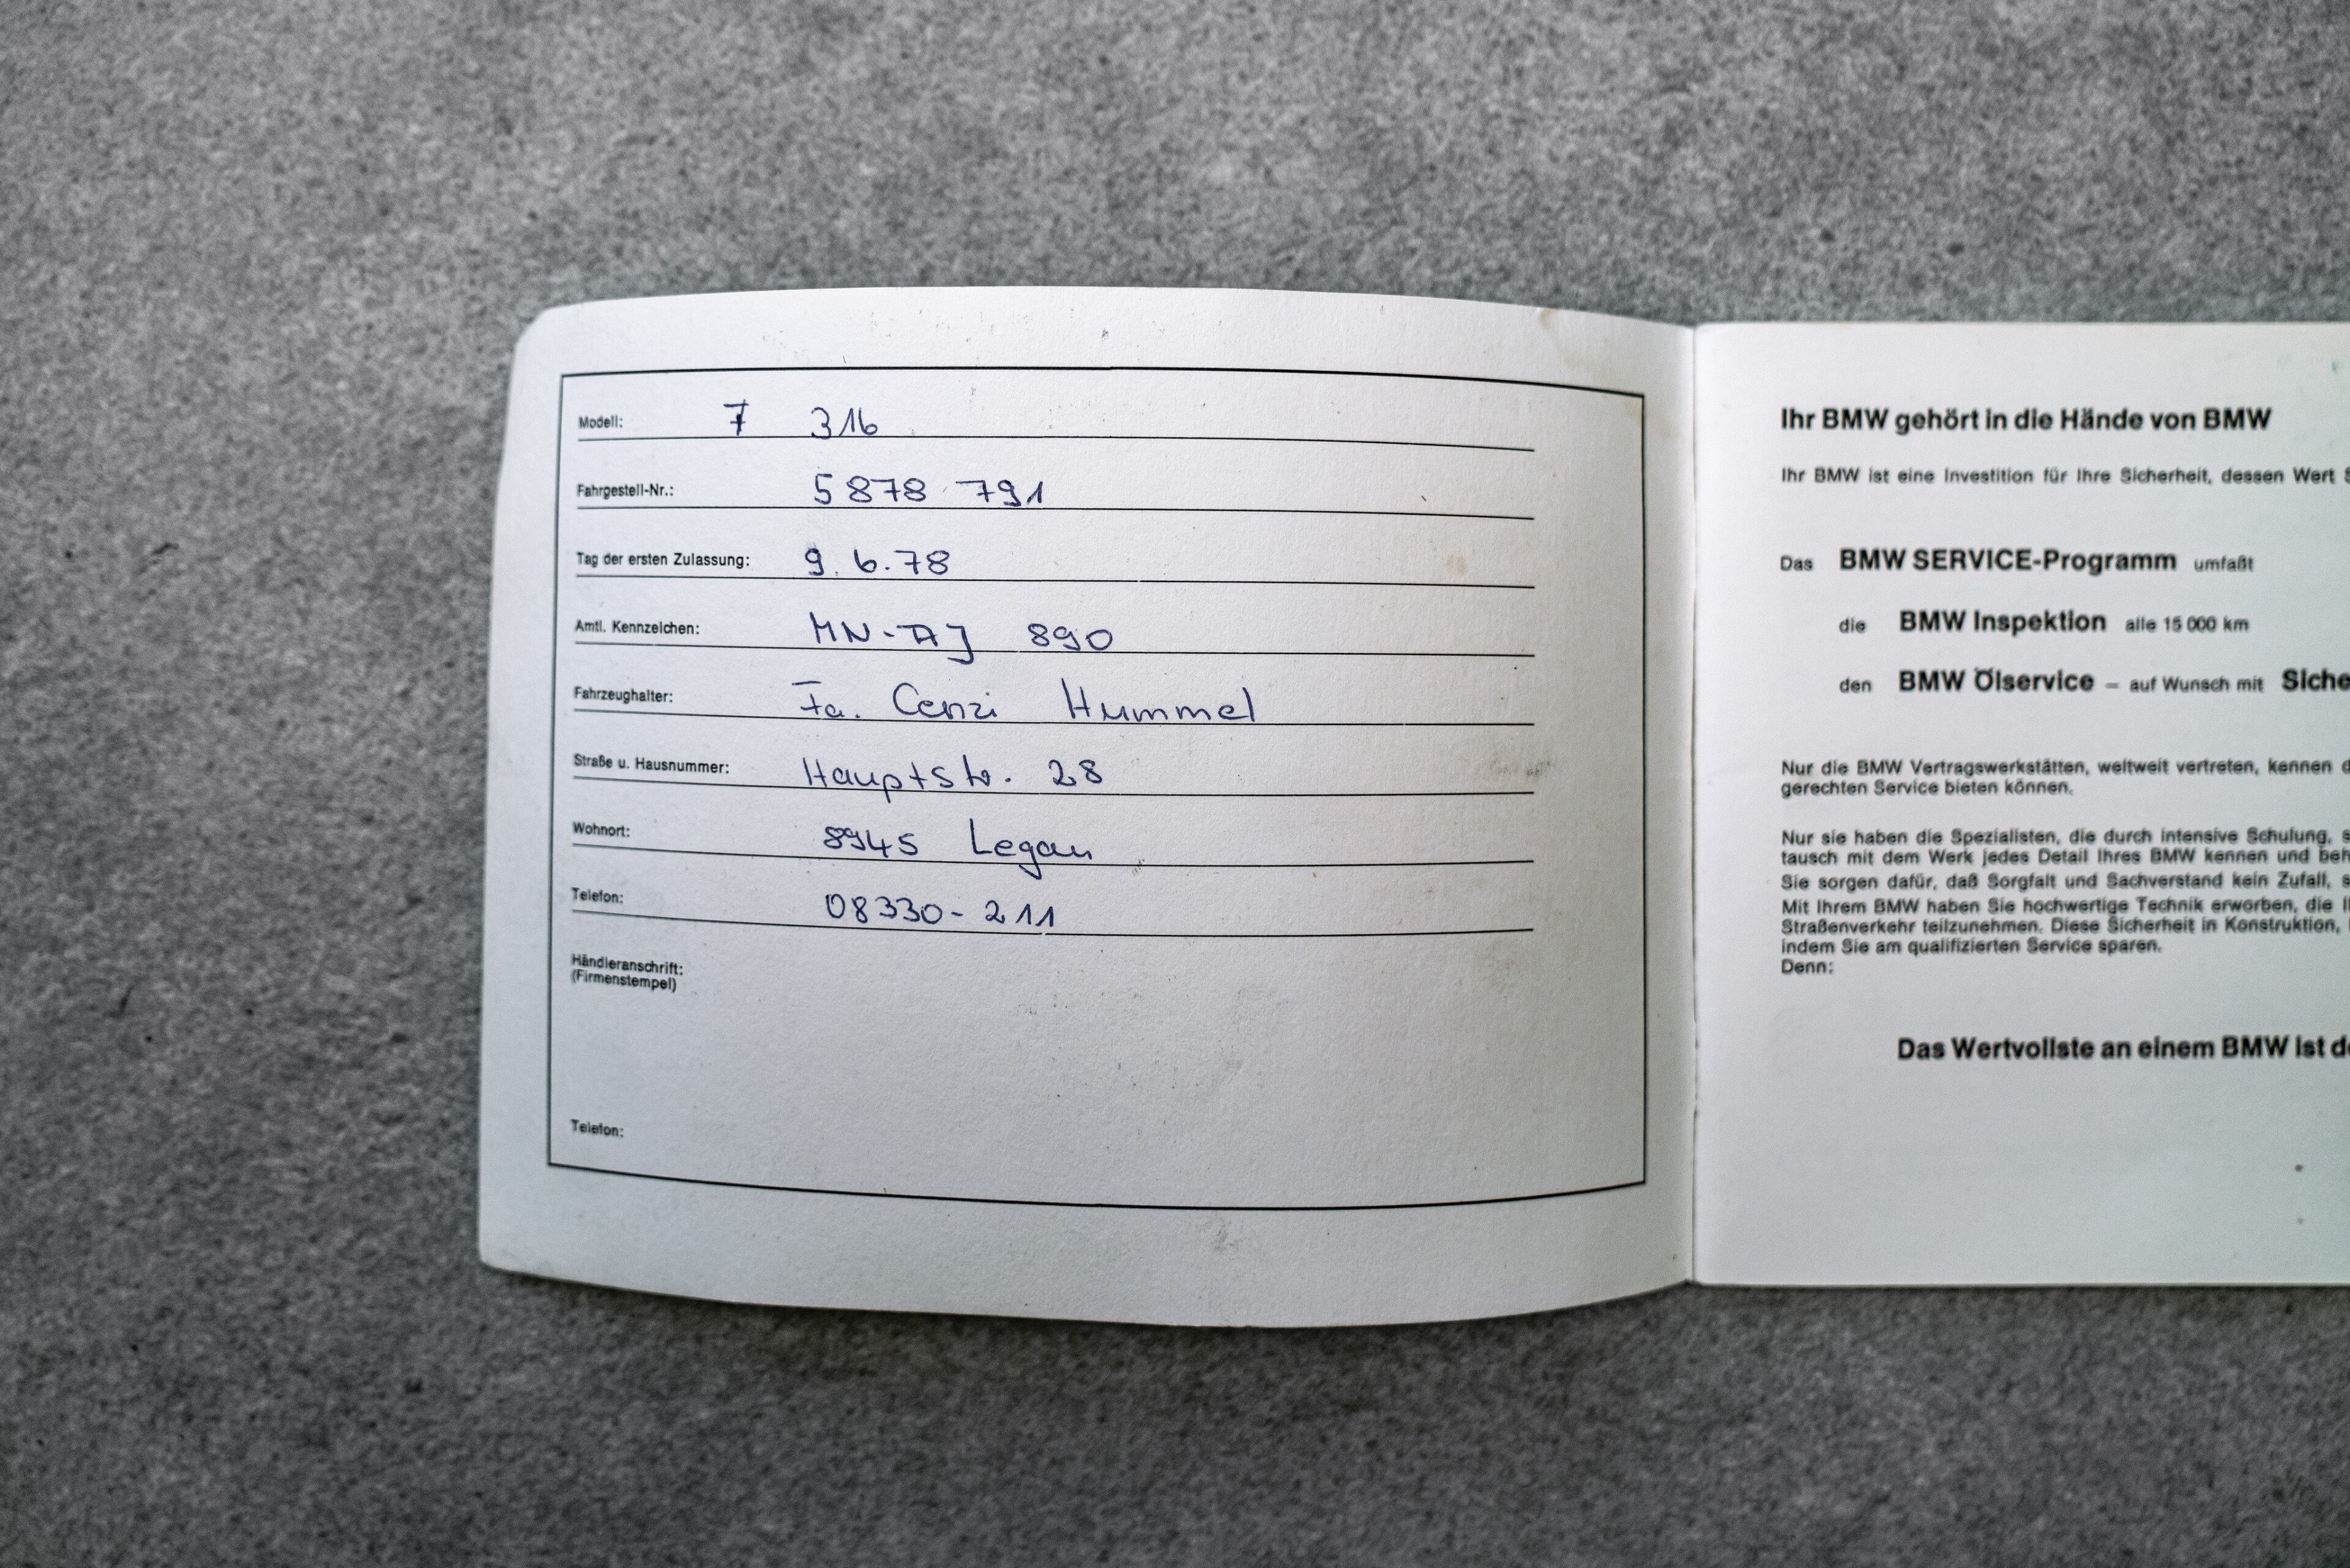 Modell: 7 316
Fahrgestell-Nr.: 5878 791
Tag der ersten Zulassung: 9. 6. 78
Amtl. Kennzeichen: MN-AJ 890
Fahrzeughalter: Fa. Cenzi Hummel
Straße u. Hausnummer: Hauptstr. 28
Wohnort: 8945 Legau
Telefon: 08330-211
Händleranschrift:
(Firmenstempel)
Telefon:
Ihr BMW gehört in die Hände von BMW
Ihr BMW ist eine Investition für Ihre Sicherheit, dessen Wert
Das BMW SERVICE-Programm umfaßt
die BMW Inspektion alle 15 000 km
den BMW Ölservice – auf Wunsch mit
Nur die BMW Vertragswerkstätten, weltweit vertreten, kennen
gerechten Service bieten können.
Nur sie haben die Spezialisten, die durch intensive Schulung,
tausch mit dem Werk jedes Detail Ihres BMW kennen und
Sie sorgen dafür, daß Sorgfalt und Sachverstand kein Zufall,
Mit Ihrem BMW haben Sie hochwertige Technik erworben, die
Straßenverkehr teilzunehmen. Diese Sicherheit in Konstruktion,
indem Sie am qualifizierten Service sparen.
Denn:
Das Wertvollste an einem BMW ist